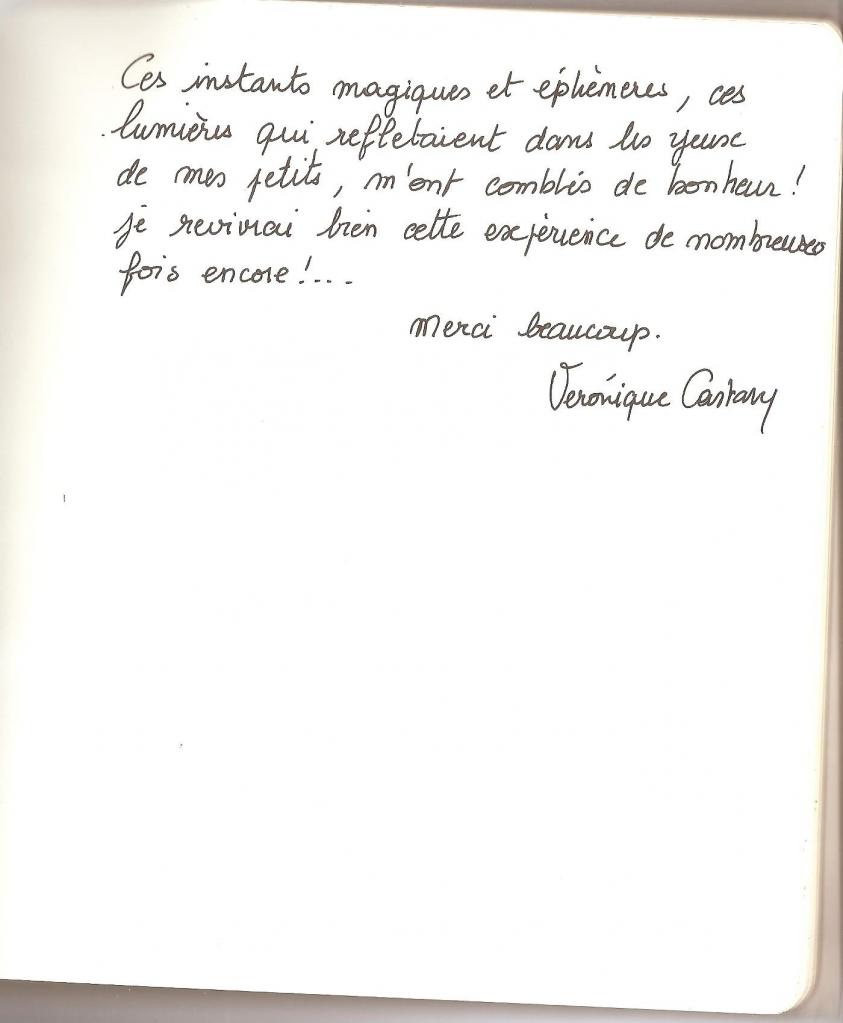 Ces instants magiques et éphèmeres, ces
lumières qui refletaient dans les yeux
de mes petits, m'ont comblés de bonheur!
je revivrai bien cette expèrience de nombreuses
fois encore!...
Merci beaucoup.
Veronique